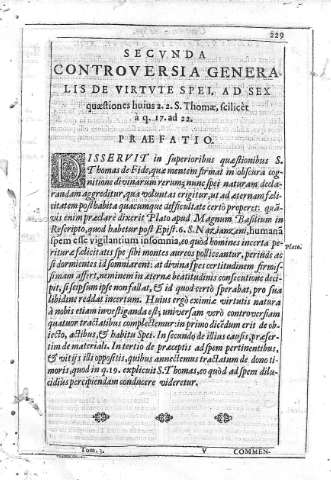 229
SECVNDA
CONTROVERSIA GENERA
LIS DE VIRTVTE SPEI, AD SEX
quæstiones huius 2. 2. S. Thomæ, scilicèt
à q. 17. ad 22.
PRAEFATIO.
DISSERVIT in superioribus quæstionibus S.
Thomas de Fide, quæ mentem firmat in obscura cog-
nitione divinarum rerum; nunc spei naturam decla-
randam aggreditur, qua voluntas erigitur, ut ad æternam fæli-
citatem posthabita quacumque difficultate certò properet: quā-
vis enim præclarè dixerit Plato apud Magnum Basilium in
Rescripto, quod habetur post Epist. 6. S. Nazianzeni, humanā
spem esse vigilantium insomnia, eo quòd homines incerta pe-
Plato.
rituræ fælicitatis spe sibi montes aureos polliceantur, perinde ac
si dormientes id somniarent: at divina spes certitudinem firmis-
simam affert, neminem in æternæ beatitudinis consecutione deci-
pit, si seipsum ipse non fallat, & id quod certò sperabat, pro sua
libidine reddat incertum. Huius ergò eximiæ virtutis natura
à nobis etiam investiganda est, universam verò controversiam
quatuor tractatibus complectemur: in primo dicēdum erit de ob-
iecto, actibus, & habitu Spei. In secundo de illius causis, præser-
tim de materiali. In tertio de præceptis ad spem pertinentibus,
& vitijs illi oppositis, quibus annectemus tractatum de dono ti-
moris quod in q. 19. explicuit S. Thomas, eo quòd ad spem dilu-
cidiùs percipiendam conducere videretur.
Tom. 3. V COMMEN-